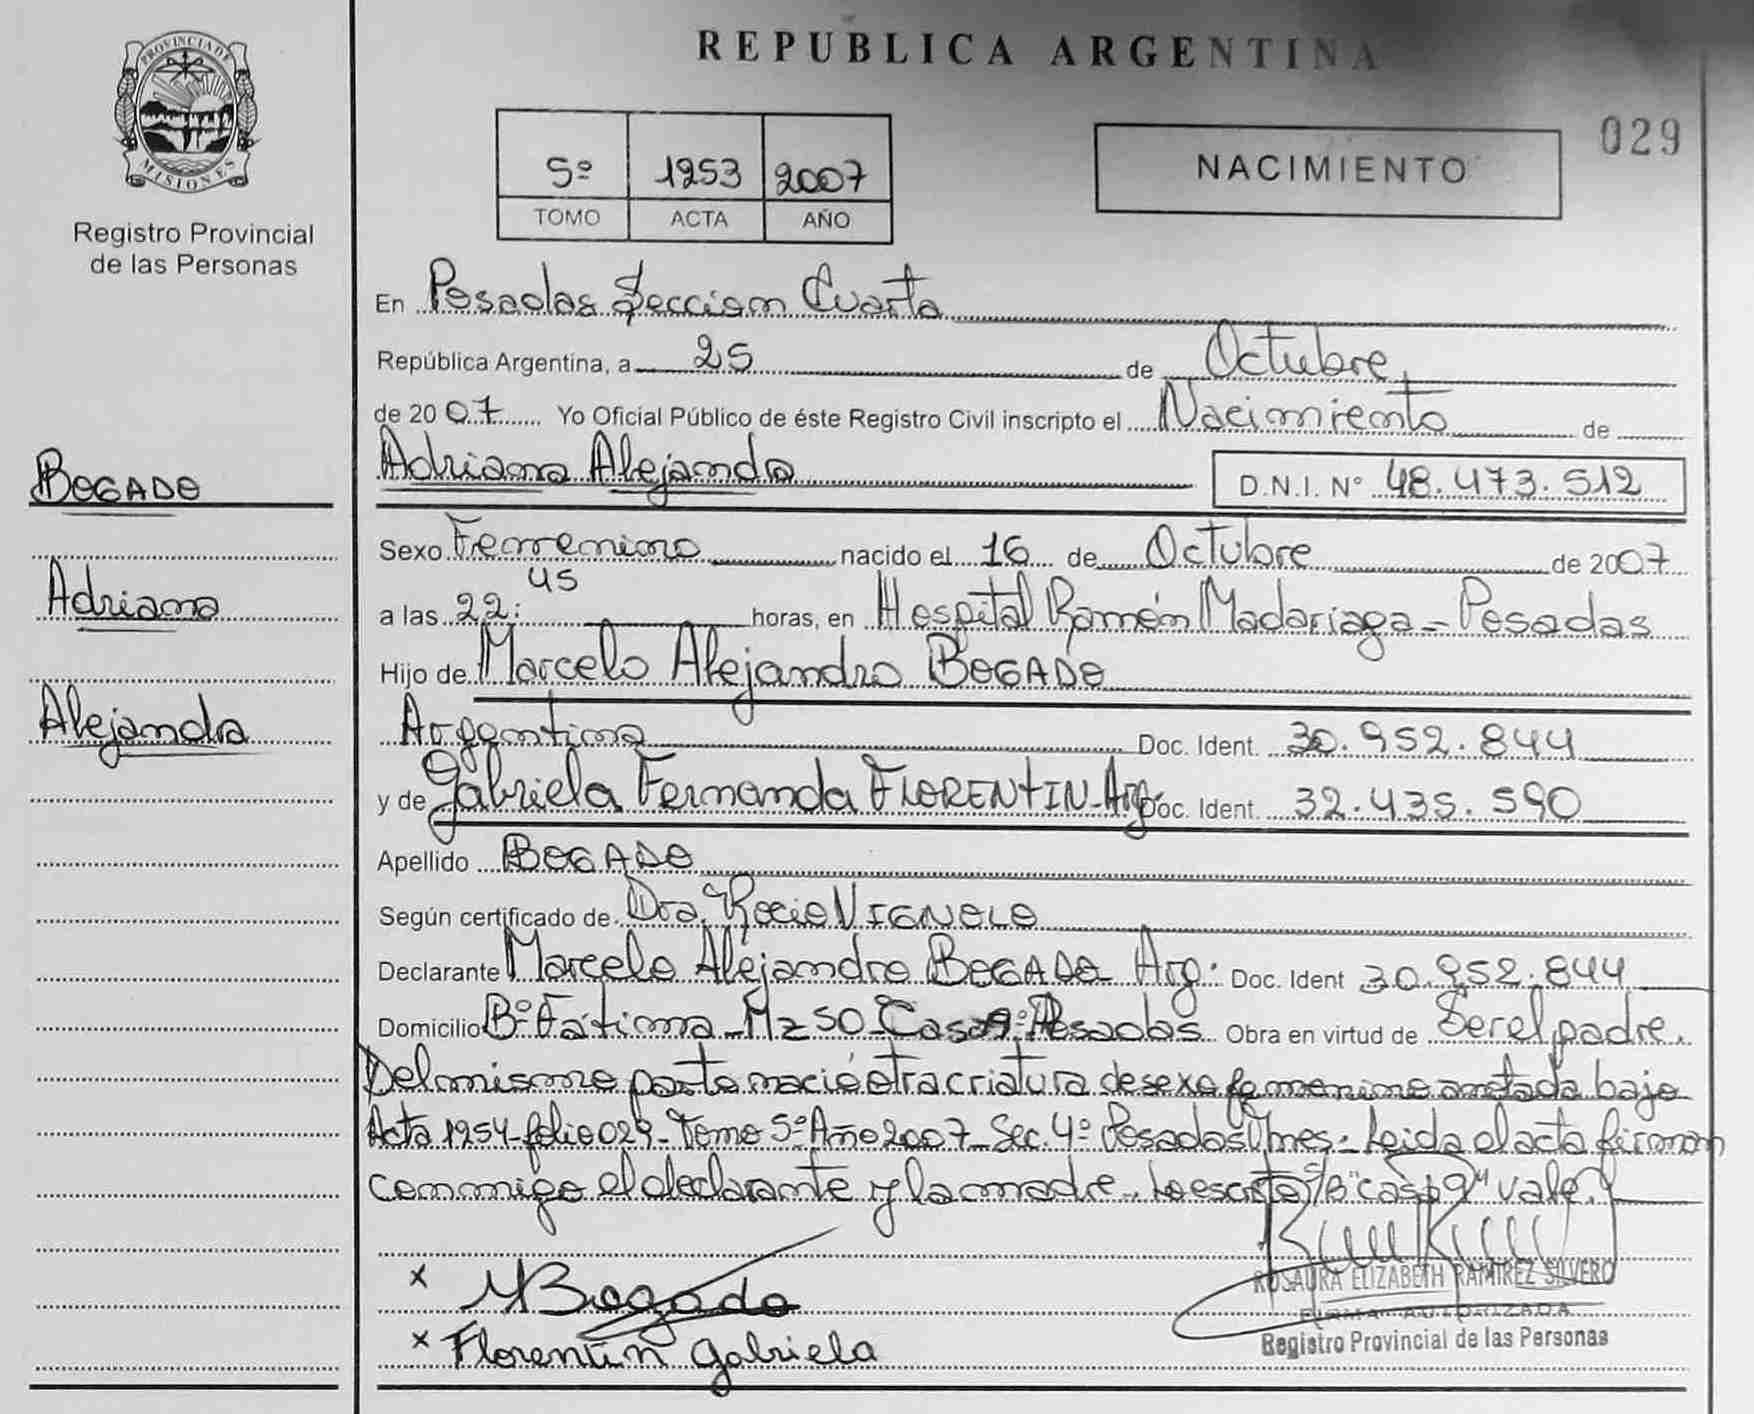 REPUBLICA ARGENTINA
PROVINCIA DE
MISIONES
Registro Provincial
de las Personas
5º 1253 2007
TOMO ACTA AÑO
NACIMIENTO
029
En Posadas Seccion Cuarta
República Argentina, a 25 de Octubre
de 2007 Yo Oficial Público de éste Registro Civil inscripto el Nacimiento de
BOGADO
Adriana Alejandra
D.N.I. Nº 48.473.512
Sexo Femenino nacido el 16 de Octubre de 2007
Adriana
a las 22:45 horas, en Hospital Ramón Madariaga - Posadas
Hijo de Marcelo Alejandro BOGADO
Alejandra
Argentina Doc. Ident. 30.952.844
y de Gabriela Fernanda FLORENTIN - Arg. Doc. Ident. 32.435.590
Apellido BOGADO
Según certificado de Dra. Rocio VIGNOLO
Declarante Marcelo Alejandro BOGADO Arg. Doc. Ident 30.952.844
Domicilio Bº Fátima - Mz 50 - Casa 9 Posadas Obra en virtud de Ser el padre.
Del mismo parto nació otra criatura de sexo femenino anotada bajo
Acta 1254 - folio 029 - Tomo 5º Año 2007 - Sec. 4º Posadas Mnes - Leida el acta firman
conmigo el declarante y la madre - Lo escrito s/b "casa 9" vale.
x MBogado
ROSAURA ELIZABETH RAMIREZ SILVERO
FIRMA AUTORIZADA
x Florentin Gabriela
Registro Provincial de las Personas